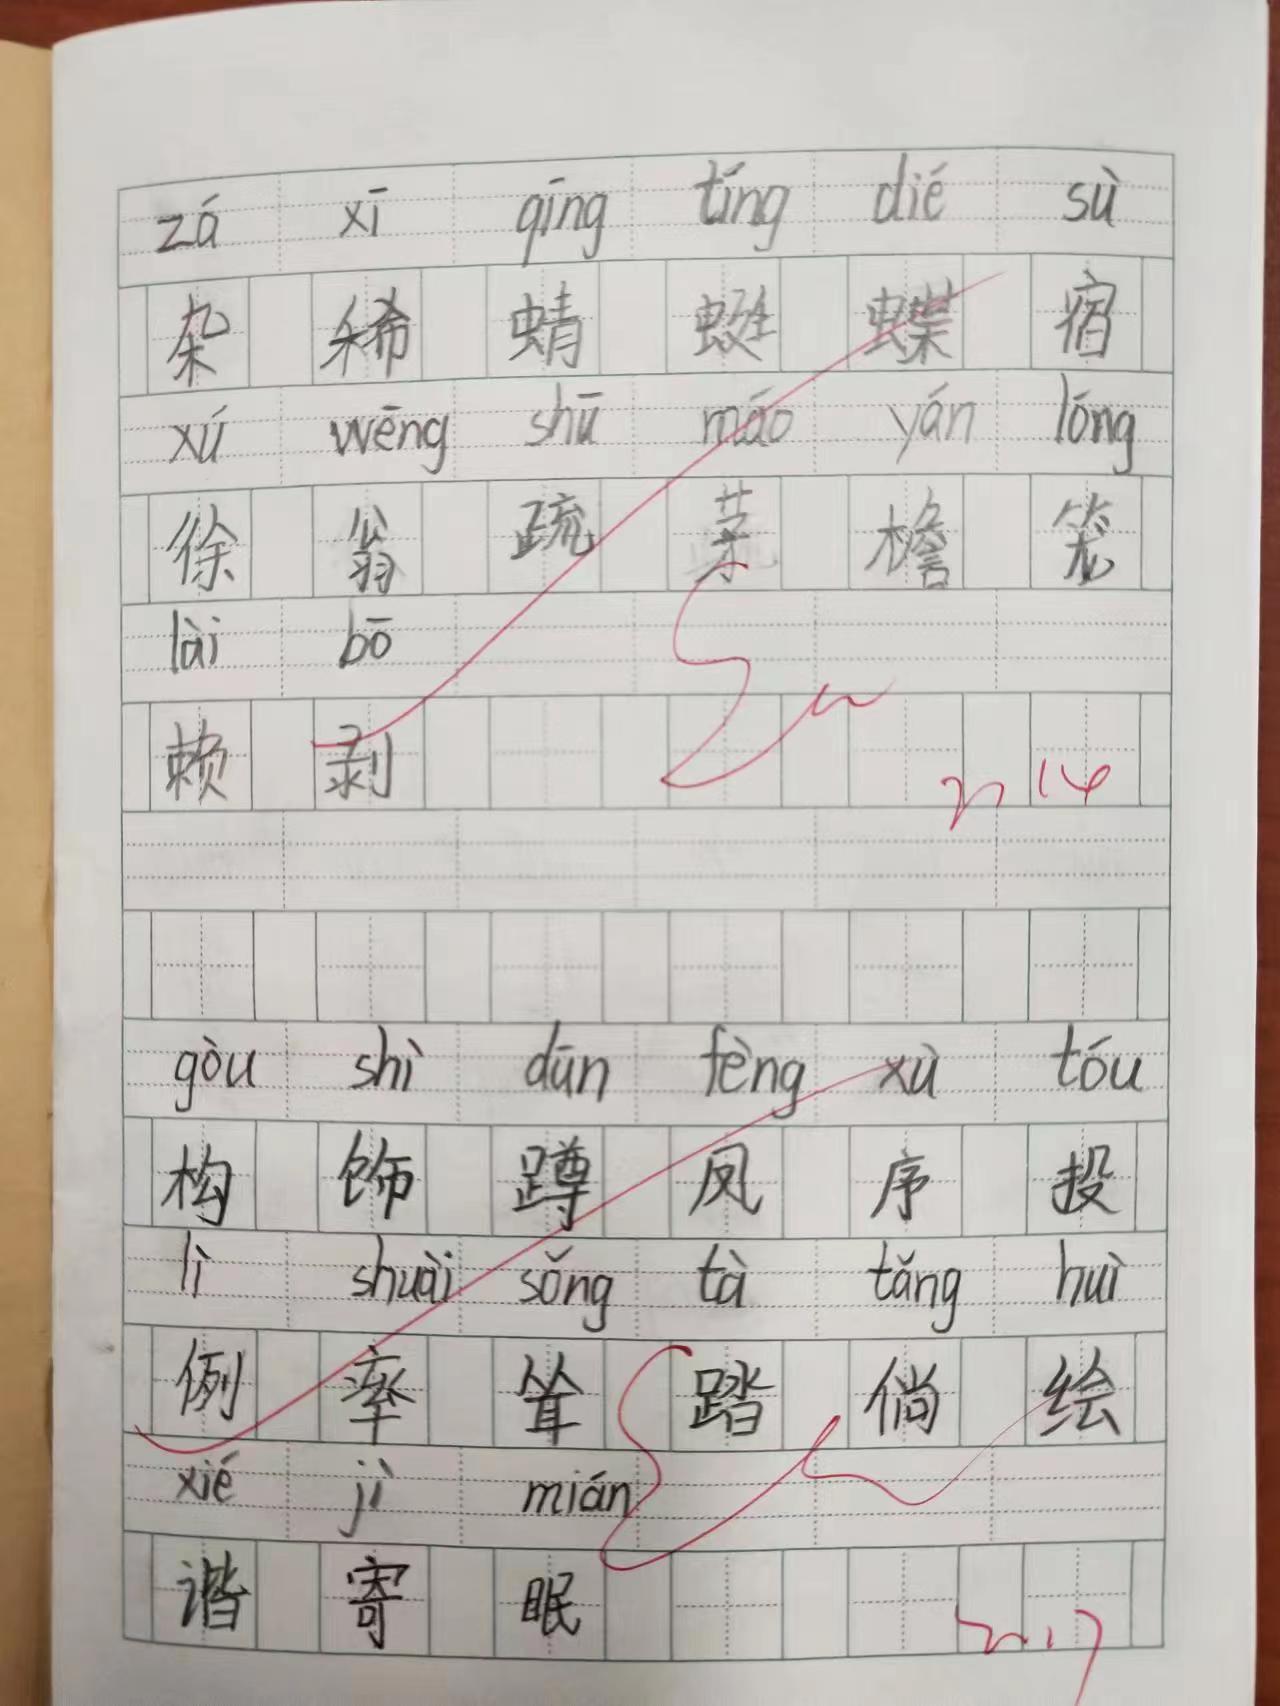 zá xī qīng tíng dié sù
杂 稀 蜻 蜓 蝶 宿
xú wēng shū máo yán lóng
徐 翁 疏 茅 檐 笼
lài bō
赖 剥
2.14
gòu shì dūn fèng xù tóu
构 饰 蹲 凤 序 投
lì shuài sǒng tà tǎng huì
例 率 耸 踏 倘 绘
xié jì mián
谐 寄 眠
2.17